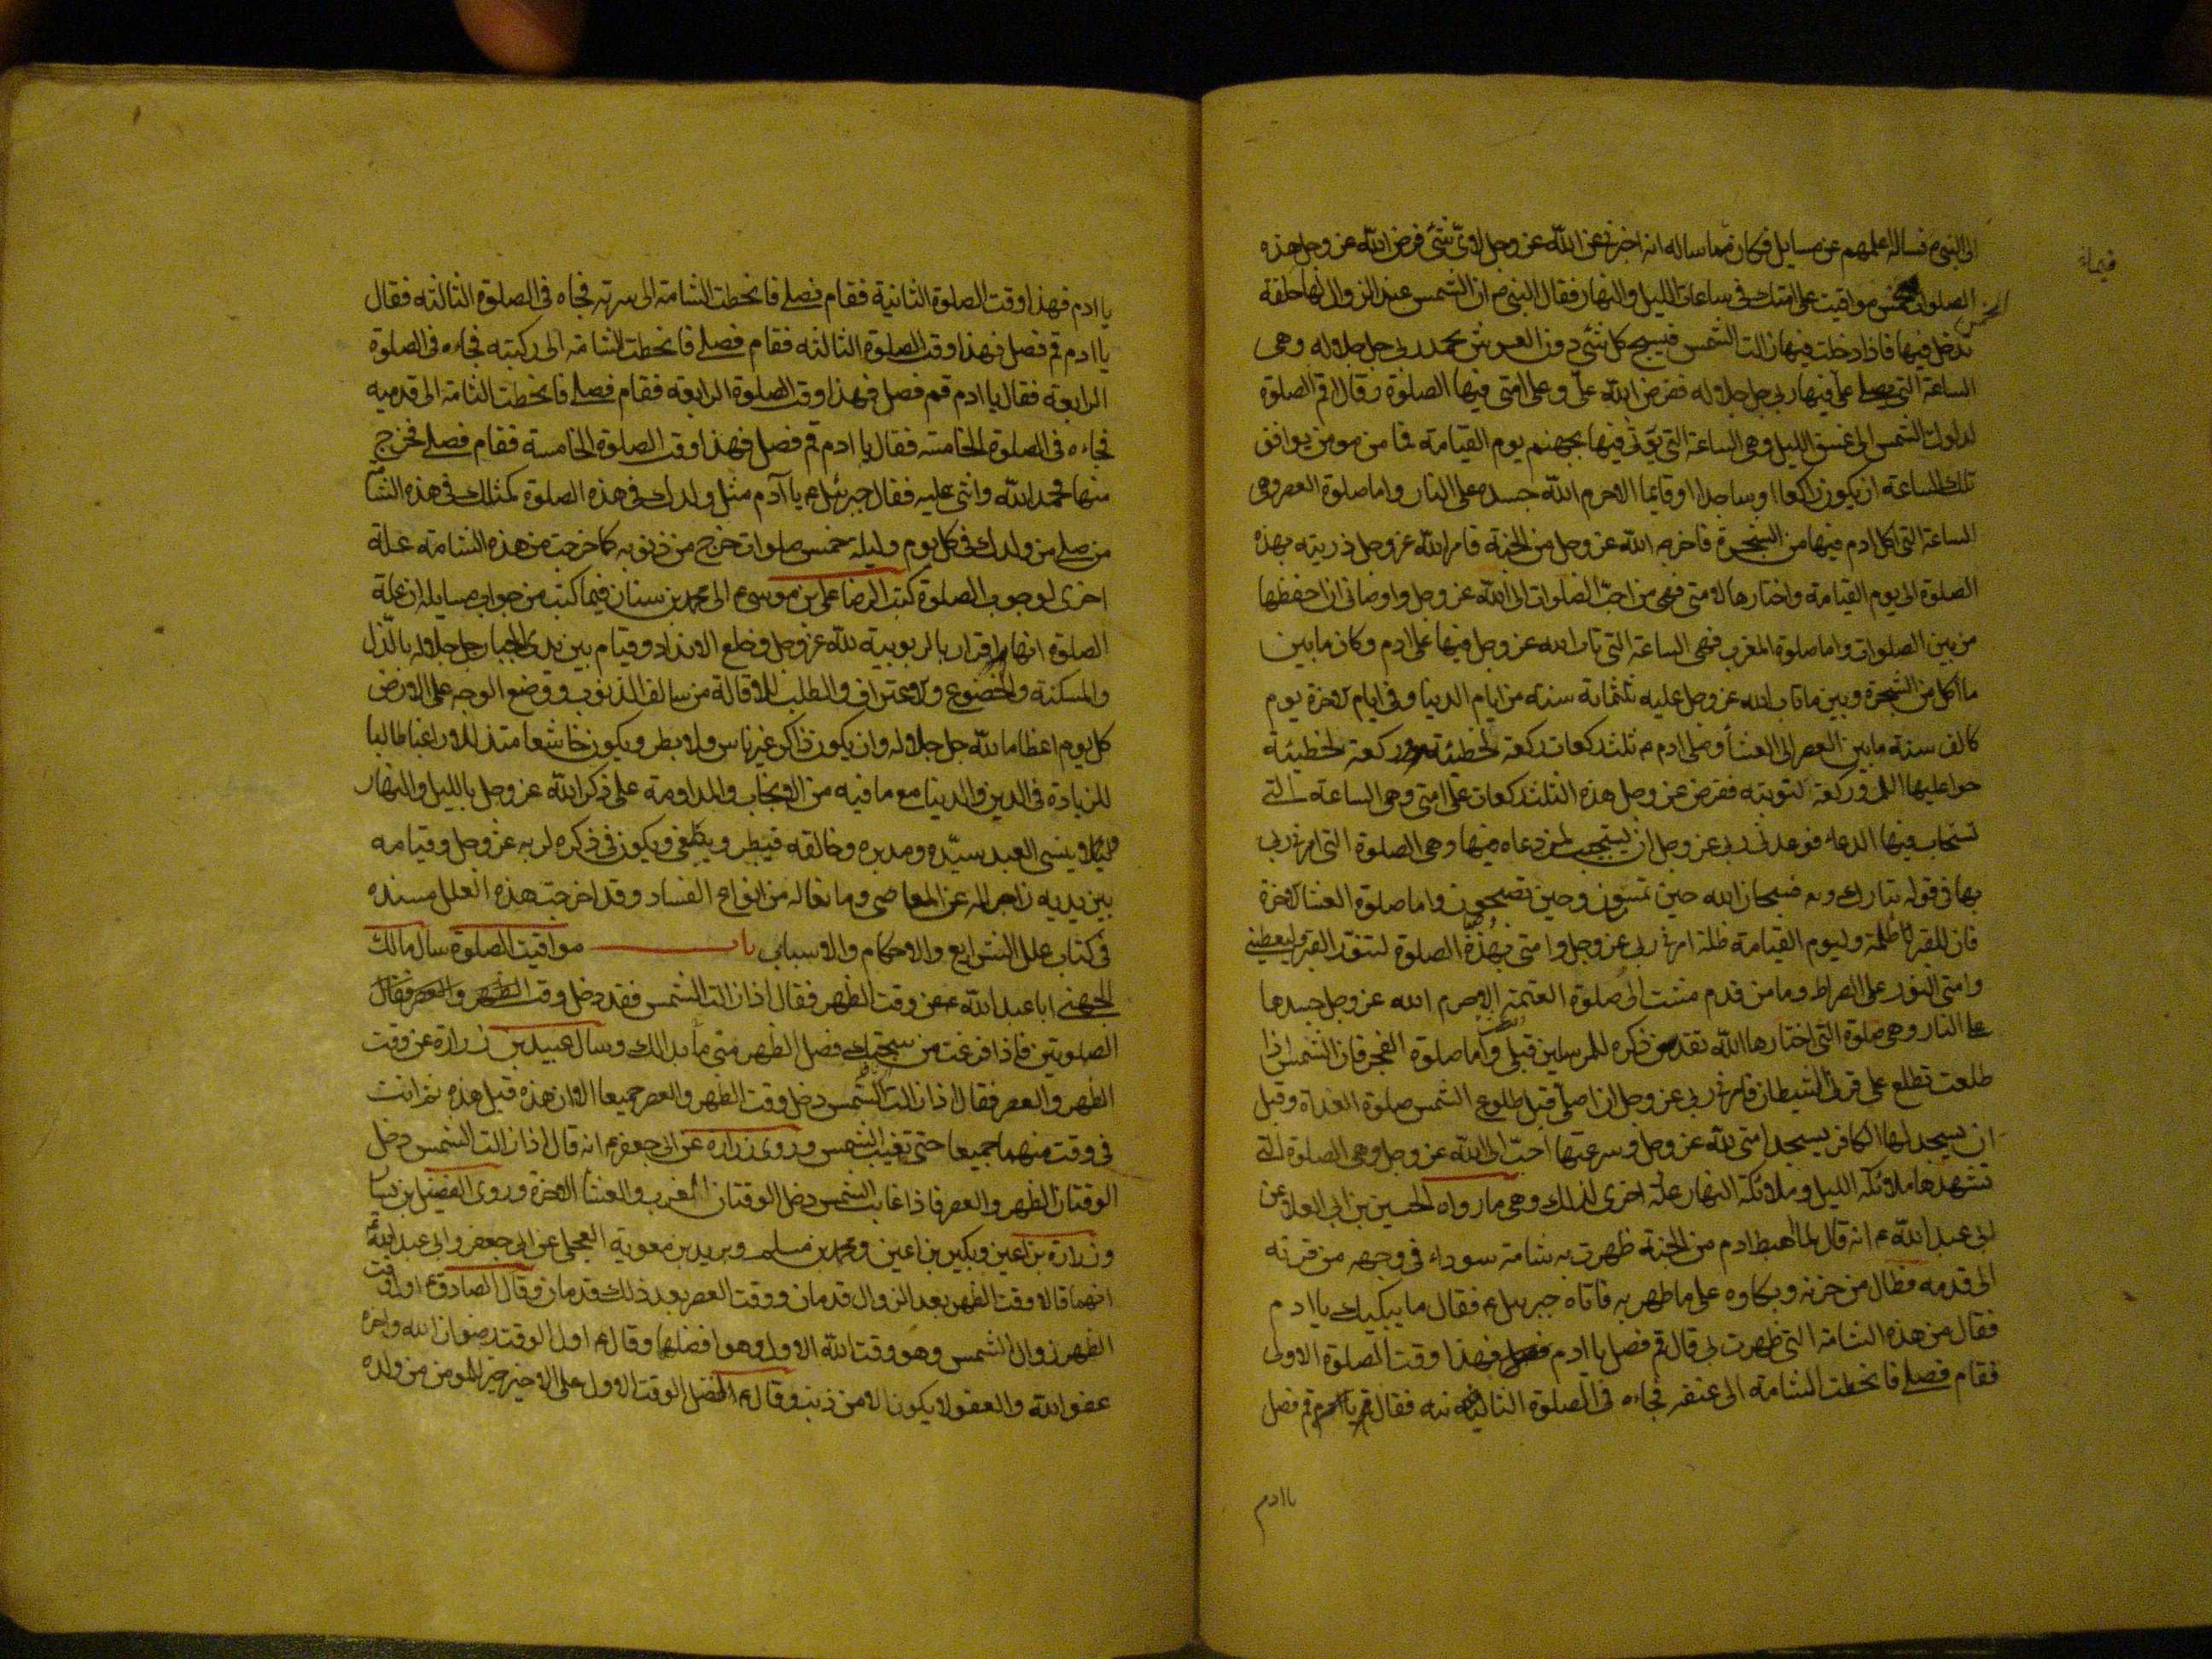 الى النبي ص فساله اعلمهم عن مسايل فكان مما ساله انه اخبرني عن الله عز وجل لاي شئ فرض الله عز وجل هذه
الصلوات الخمس مواقيت على امتك في ساعات الليل والنهار فقال النبي ص ان الشمس عند الزوال لها حلقة
تدخل فيها فاذا دخلت فيها زالت الشمس فيسبح كل شئ دون العرش بحمد ربي جل جلاله وهى
الساعة التي يصلى على فيها ربي جل جلاله ففرض الله على وعلى امتى فيها الصلوة وقال اقم الصلوة
لدلوك الشمس الى غسق الليل وهى الساعة التي يؤتى فيها بجهنم يوم القيامة فما من مومن يوافق
تلك الساعة ان يكون راكعا او ساجدا او قايما الا حرم الله جسده على النار واما صلوة العصر وهى
الساعة التي اكل ادم فيها من الشجرة فاخرجه الله عز وجل من الجنة فامر الله عز وجل ذريته بهذه
الصلوة الى يوم القيامة واختارها لامتى فهى من احب الصلوات الى الله عز وجل واوصانى ان احفظها
من بين الصلوات واما صلوة المغرب فهى الساعة التي تاب الله عز وجل فيها على ادم وكان ما بين
ما اكل من الشجرة وبين ما تاب الله عز وجل عليه ثلثمائة سنة من ايام الدنيا وفي ايام الاخرة يوم
كالف سنة ما بين العصر الى العشا وصلى ادم ع ثلث ركعات ركعة لخطيئته وركعة لخطيئة
حوا عليها السلام وركعة لتوبته ففرض عز وجل هذه الثلث ركعات على امتى وهى الساعة التي
تستجاب فيها الدعاء فوعدنى ربي عز وجل ان يستجيب لمن دعاه فيها وهى الصلوة التي امرنى ربي
بها في قوله تبارك وتع فسبحان الله حين تمسون وحين تصبحون واما صلوة العشا الاخرة
فان للقبر ظلمة وليوم القيامة ظلمة امرنى ربي عز وجل وامتى بهذه الصلوة لتنور القبر وليعطينى
وامتى النور على الصراط وما من قدم مشت الى صلوة العتمة الا حرم الله عز وجل جسدها
على النار وهى الصلوة التي اختارها الله تقدس ذكره للمرسلين قبلى واما صلوة الفجر فان الشمس اذا
طلعت تطلع على قرنى الشيطان فامرنى ربي عز وجل ان اصلى قبل طلوع الشمس صلوة الغداة وقبل
ان يسجد لها الكافر يسجد امتى لله عز وجل وسرعتها احب الى الله عز وجل وهى الصلوة التي
تشهدها ملائكة الليل وملائكة النهار علة اخرى لذلك وهى ما رواه الحسين بن ابى العلا عن
ابى عبد الله ع انه قال لما اهبط ادم من الجنة ظهرت به شامة سوداء في وجهه من قرنه
الى قدمه فطال حزنه وبكاوه على ما ظهر به فاتاه جبرئيل ع فقال ما يبكيك يا ادم
فقال من هذه الشامة التي ظهرت بى قال قم فصل يا ادم فهذا وقت الصلوة الاولى
فقام فصلى فانحطت الشامة الى عنقه فجاءه في الصلوة الثانية فقال يا ادم قم فصل
يا ادم
يا ادم فهذا وقت الصلوة الثانية فقام فصلى فانحطت الشامة الى سرته فجاه في الصلوة الثالثة فقال
يا ادم قم فصل فهذا وقت الصلوة الثالثة فقام فصلى فانحطت الشامة الى ركبته فجاءه في الصلوة
الرابعة فقال يا ادم قم فصل فهذا وقت الصلوة الرابعة فقام فصلى فانحطت الشامة الى قدميه
فجاءه في الصلوة الخامسة فقال يا ادم قم فصل فهذا وقت الصلوة الخامسة فقام فصلى فخرج
منها فحمد الله واثنى عليه فقال جبرئيل ع يا آدم مثل ولدك في هذه الصلوة كمثلك في هذه الشامة
من صلى من ولدك في كل يوم وليلة خمس صلوات خرج من ذنوبه كما خرجت من هذه الشامة علة
اخرى لوجوب الصلوة كتب الرضا على بن موسى ع الى محمد بن سنان فيما كتب من جواب مسايله ان علة
الصلوة انها اقرار بالربوبية لله عز وجل وخلع الانداد وقيام بين يدى الجبار جل جلاله بالذل
والمسكنة والخضوع والاعتراف والطلب للاقالة من سالف الذنوب ووضع الوجه على الارض
كل يوم اعظاما لله جل جلاله وان يكون ذاكرا غير ناس ولا بطر ويكون خاشعا متذللا راغبا طالبا
للزيادة في الدين والدنيا مع ما فيه من الايجاب والمداومة على ذكر الله عز وجل بالليل والنهار
لئلا ينسى العبد سيده ومدبره وخالقه فيبطر ويطغى ويكون في ذكره لربه عز وجل وقيامه
بين يديه زاجرا له عن المعاصى ومانعا له من انواع الفساد وقد اخرجت هذه العلل مسندة
في كتاب علل الشرايع والاحكام والاسباب باب مواقيت الصلوة سال مالك
الجهنى ابا عبد الله ع عن وقت الظهر فقال اذا زالت الشمس فقد دخل وقت
الصلوتين فاذا فرغت من سبحتك فصل الظهر متى ما بدا لك وسال عبيد بن زرارة عن وقت
الظهر والعصر فقال اذا زالت الشمس دخل وقت الظهر والعصر جميعا الا ان هذه قبل هذه ثم انت
في وقت منهما جميعا حتى تغيب الشمس وروى زرارة عن ابى جعفر ع انه قال اذا زالت الشمس دخل
الوقتان الظهر والعصر فاذا غابت الشمس دخل الوقتان المغرب والعشا الاخرة وروى الفضيل بن يسار
وزرارة بن اعين وبكير بن اعين ومحمد بن مسلم وبريد بن معوية العجلى عن ابى جعفر وابى عبد الله ع
انهما قالا وقت الظهر بعد الزوال قدمان ووقت العصر بعد ذلك قدمان وقال الصادق ع اول وقت
الظهر زوال الشمس وهو وقت الله الاول وهو افضلها وقال ع اول الوقت رضوان الله واخره
عفو الله والعفو لا يكون الا من ذنب وقال ع لفضل الوقت الاول على الاخير خير للمومن من ولده